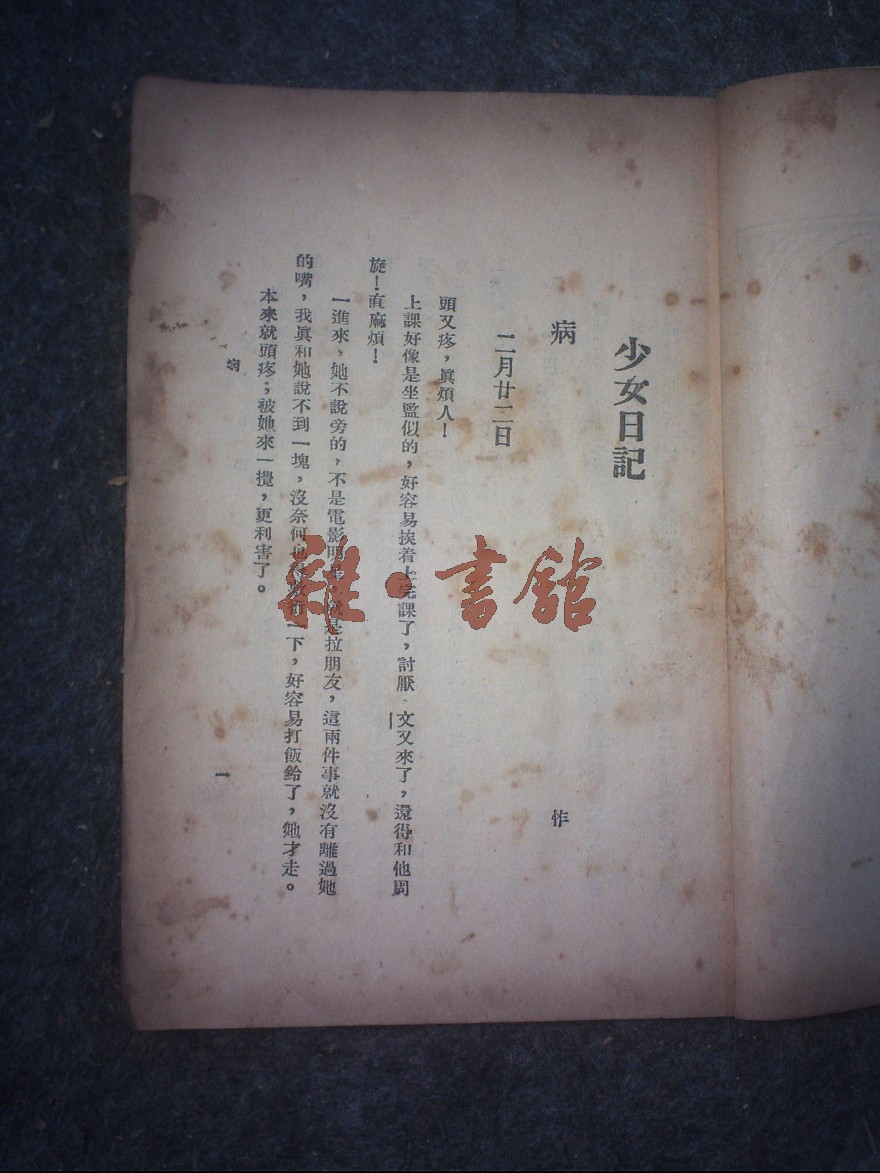 少女日記
病 作
二月廿二日
頭又疼，眞煩人！
上課好像是坐監似的，好容易挨着上完課了，討厭 文又來了，還得和他周
旋！直麻煩！
一進來，她不說旁的，不是電影明 就是拉朋友，這兩件事就沒有離過她
的嘴，我眞和她說不到一塊，沒奈何 一下，好容易打飯鈴了，她才走。
本來就頭疼；被她來一攪，更利害了。
病
一
雜·書館